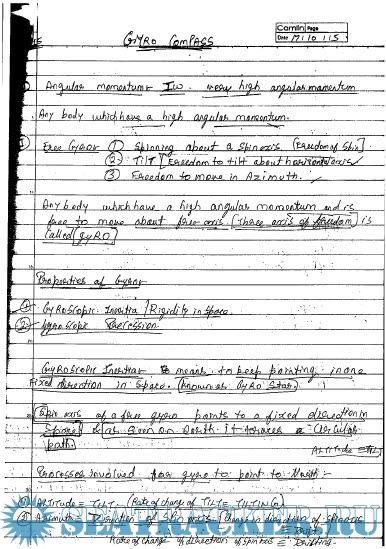 GYRO COMPASS
Camlin Page
Date 17 10 15
Angular momentum = Iω. very high angular momentum
Any body which have a high angular momentum.
Free Gyro ① Spinning about a spin axis [Freedom of Spin]
② TILT [Freedom to tilt about horizontal axis
③ Freedom to move in Azimuth.
Any body which have a high angular momentum and is
free to move about free axis (Three axis of freedom) is
called gyro
Properties of Gyro:-
① Gyroscopic Inertia / Rigidity in space.
② Gyroscopic Precession
Gyroscopic Inertia means to keep pointing in one
fixed direction in space. (known as Gyro Star).
Spin axis of a free gyro points to a fixed direction in
Space & as seen on Earth it traces a circular
path.
Altitude = Tilt
Processes involved for gyro to point to North:-
① Altitude = TILT (Rate of change of TILT = TILTING)
② Azimuth = Direction of spin axis. Change in direction of spin axis
Rate of change of direction of spin axis = Drifting.
SEATRACKER.RU